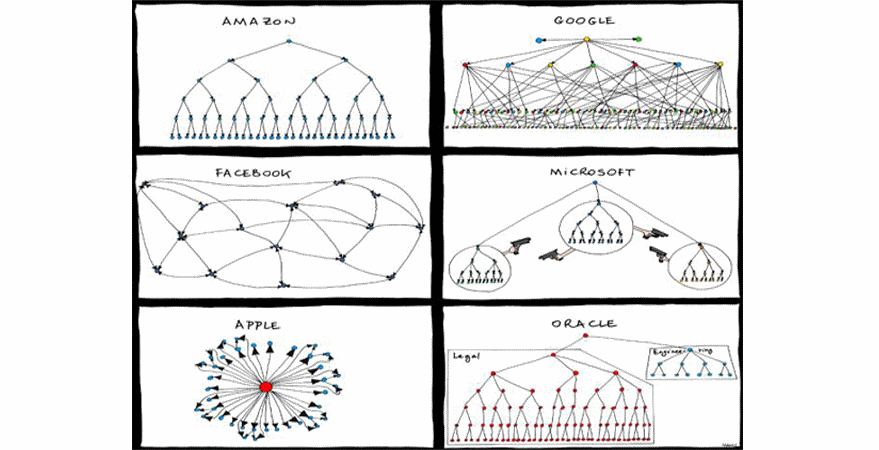 AMAZON
GOOGLE
FACEBOOK
MICROSOFT
APPLE
ORACLE
Legal
Engineering